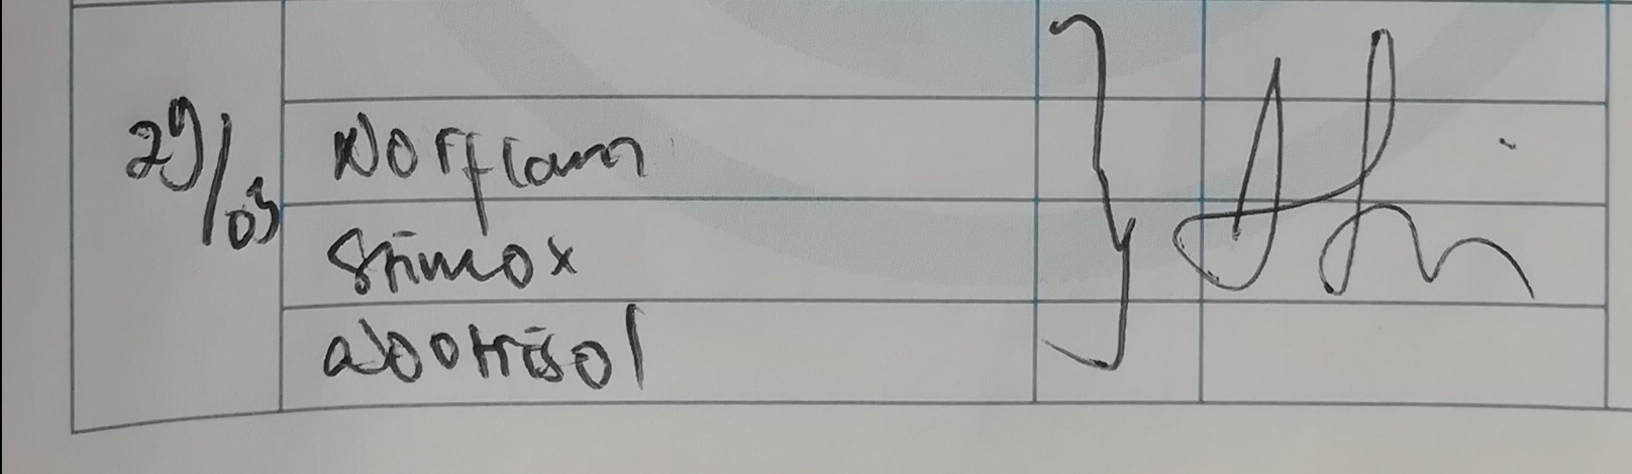 29/03
Norflam
Stimox
Nootrisol